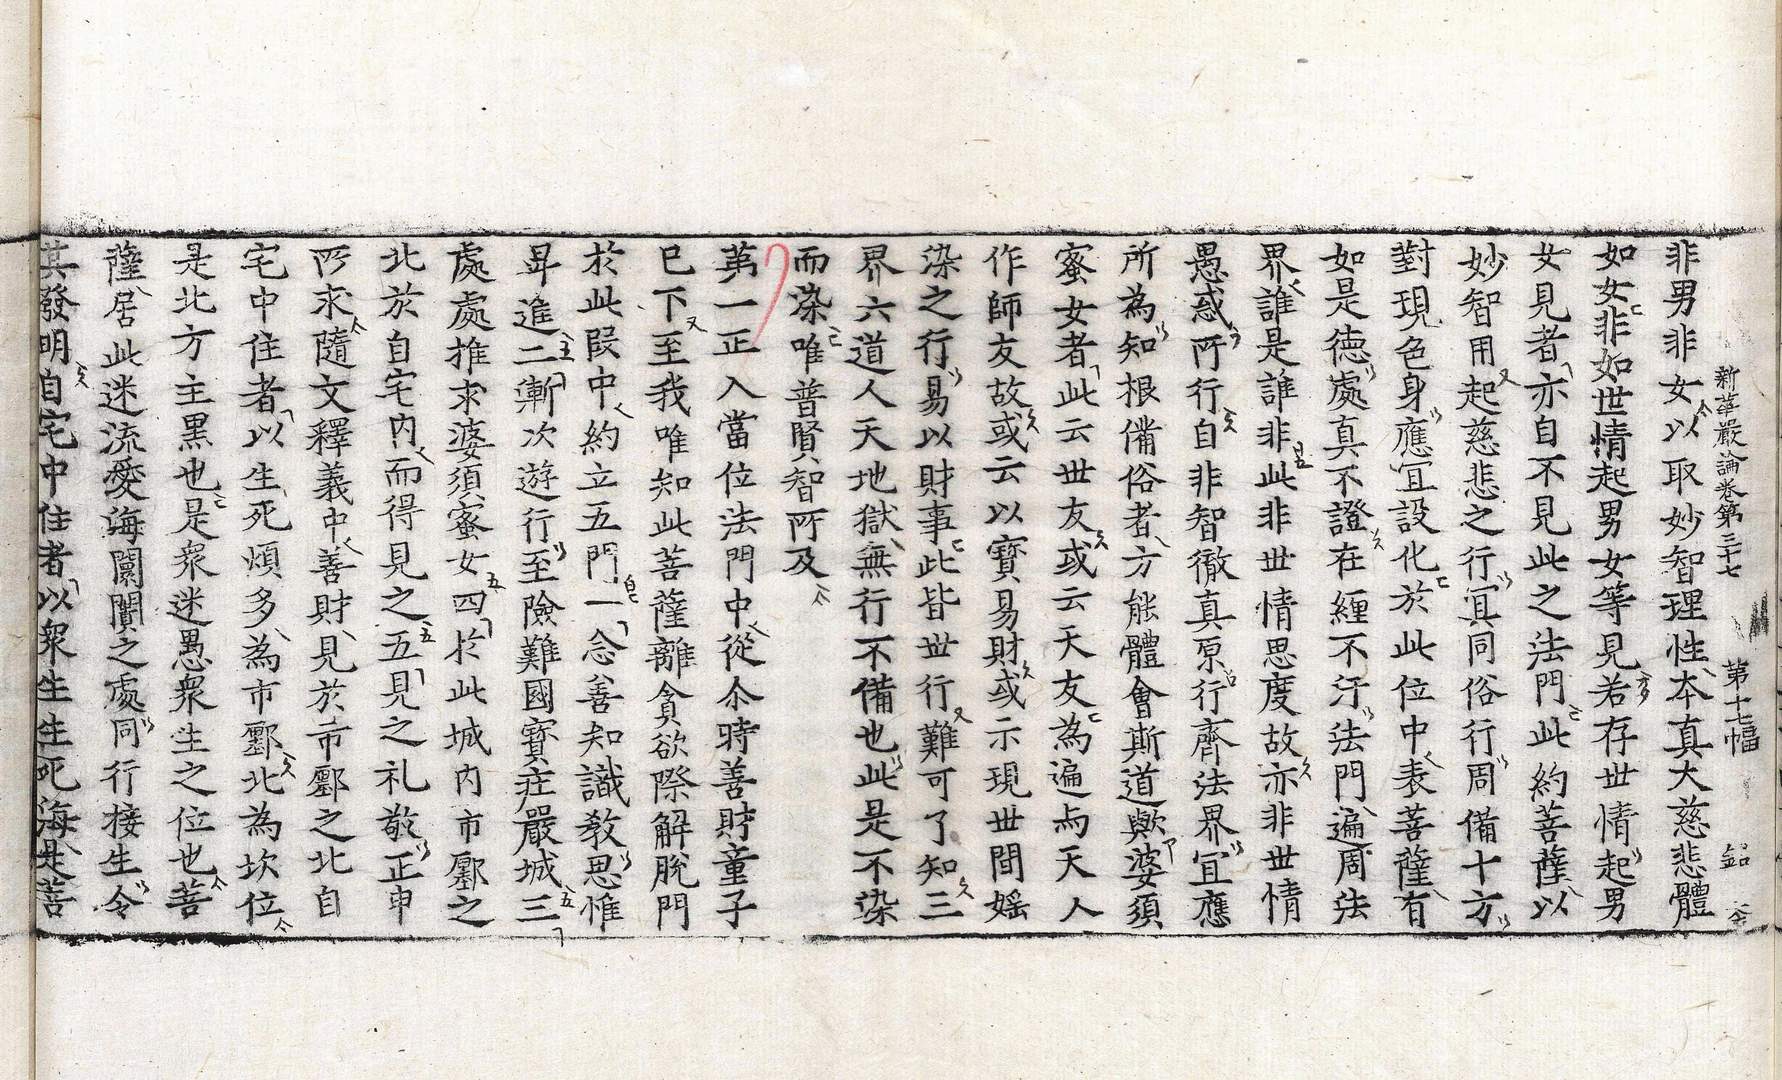 新華嚴論卷第三十七 第十七幅 㕣
非男非女以取妙智理性本真大慈悲體
如女非如世情起男女等見若存世情起男
女見者亦自不見此之法門此約菩薩以
妙智用起慈悲之行冝同俗行周備十方
對現色身應冝設化於此位中表菩薩有
如是德處真不證在纏不汙法門遍周法
界誰是誰非此非世情思度故亦非世情
愚惑所行自非智徹真原行齊法界冝應
所為知根備俗者方能體會斯道歟婆須
蜜女者此云世友或云天友為遍与天人
作師友故或云以寶易財或示現世間婬
染之行易以財事此皆世行難可了知三
界六道人天地獄無行不備也此是不染
而染唯普賢智所及
第一正入當位法門中從尒時善財童子
已下至我唯知此菩薩離貪欲際解脫門
於此段中約立五門一念善知識教思惟
昇進二漸次遊行至險難國寶莊嚴城三
處處推求婆須蜜女四於此城內市鄽之
北於自宅內而得見之五見之礼敬正申
所求隨文釋義中善財見於市鄽之北自
宅中住者以生死煩多為市鄽北為坎位
是北方主黑也是衆迷愚衆生之位也菩
薩居此迷流愛海闤闠之處同行接生令
其發明自宅中住者以衆生生死海是菩